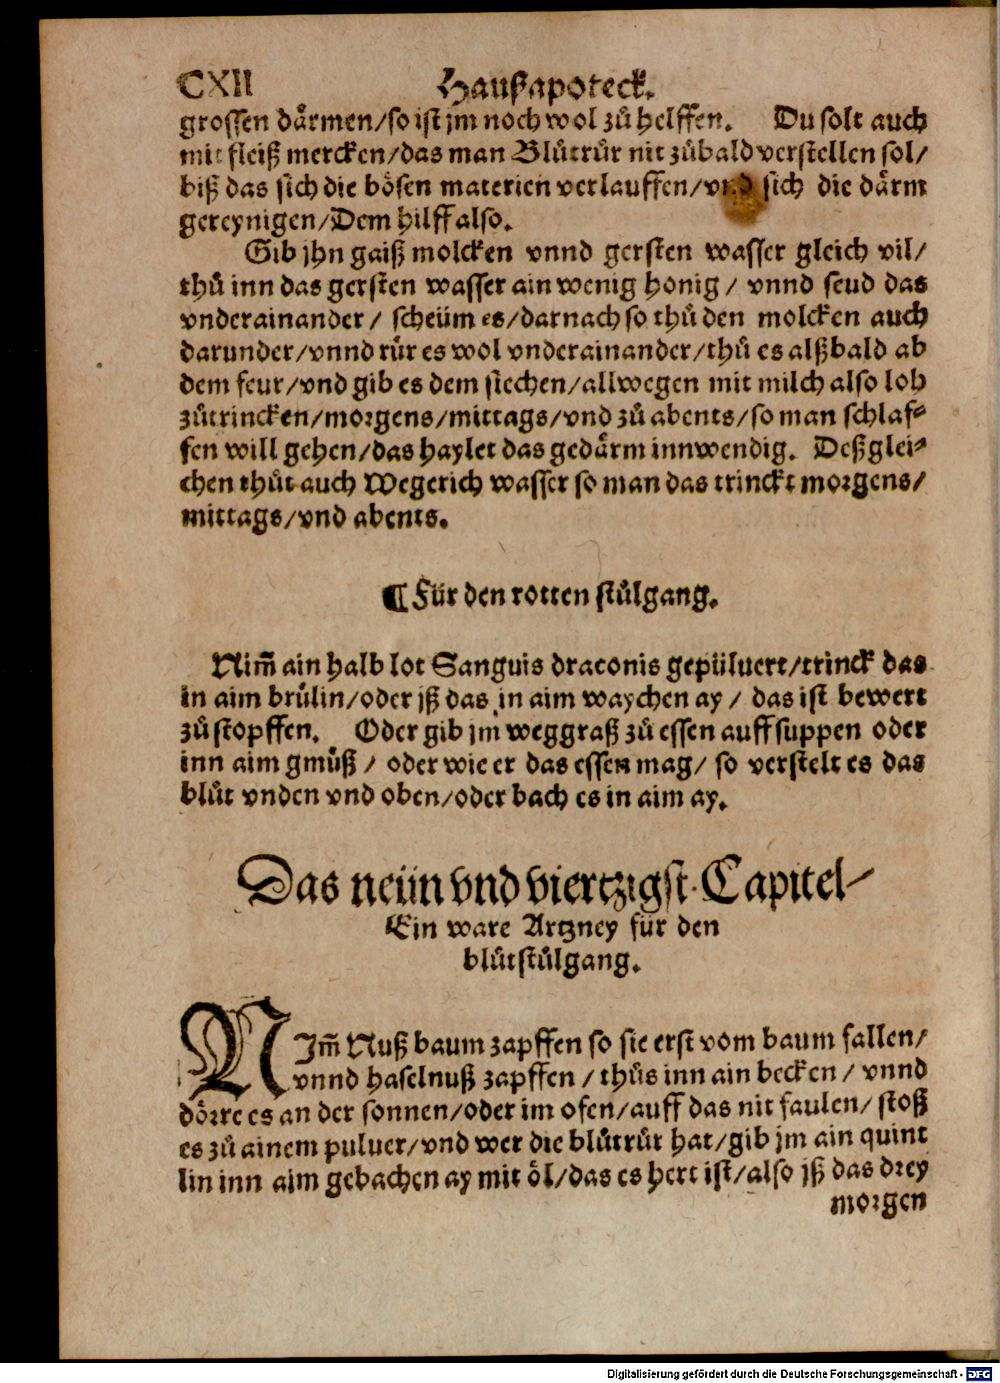 CXII Haußapoteck.
grossen dårmen/so ist jm noch wol zů helffen. Du solt auch
mit fleiß mercken/das man Blůtrůr nit zůbald verstellen sol/
biß das sich die bösen materien verlauffen/vnd sich die dårm
gereynigen/Dem hilff also.
Gib jhn gaiß molcken vnnd gersten wasser gleich vil/
thů inn das gersten wasser ain wenig honig / vnnd seud das
vnderainander / scheüm es/darnach so thů den molcken auch
darunder/vnnd růr es wol vnderainander/thů es alßbald ab
dem feur/vnd gib es dem siechen/allwegen mit milch also loh
zůtrincken/morgens/mittags/vnd zů abents/so man schlaf⸗
fen will gehen/das haylet das gedårm innwendig. Deßglei⸗
chen thůt auch Wegerich wasser so man das trinckt morgens/
mittags/vnd abents.
¶ Für den rotten stůlgang.
Nim̃ ain halb lot Sanguis draconis gepüluert/trinck das
in aim brůlin/oder jß das in aim waychen ay / das ist bewert
zů stopffen. Oder gib jm weggraß zů essen auff suppen oder
inn aim gmůß / oder wie er das essen mag/ so verstelt es das
blůt vnden vnd oben/oder bach es in aim ay.
Das neün vnd viertzigst Capitel/
Ein ware Artzney für den
blůtstůlgang.
NIm̃ Nuß baum zapffen so sie erst vom baum fallen/
vnnd haselnuß zapffen / thůs inn ain becken / vnnd
dörre es an der sonnen/oder im ofen/auff das nit faulen/ stoß
es zů ainem puluer/vnd wer die blůtrůr hat/gib jm ain quint
lin inn aim gebachen ay mit öl/das es hert ist/also jß das drey
morgen
Digitalisierung gefördert durch die Deutsche Forschungsgemeinschaft - DFG